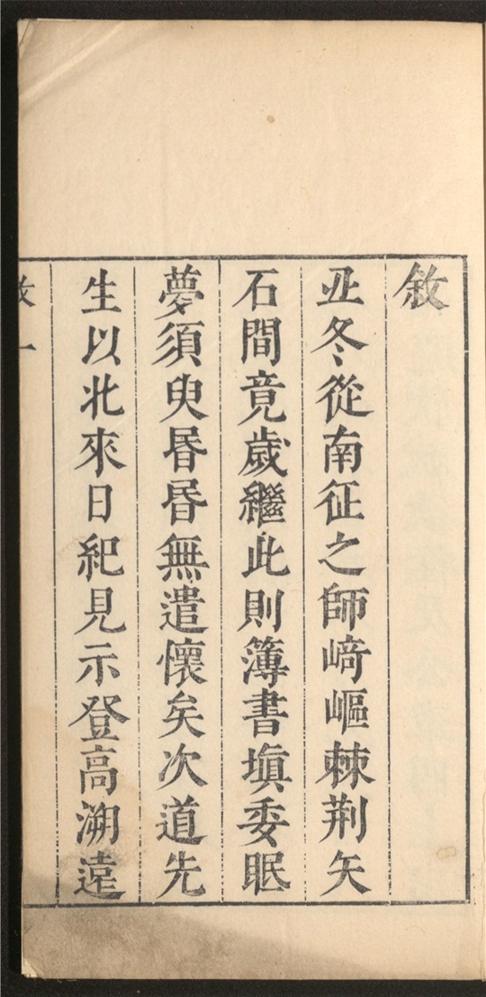 敘
丑冬從南征之師﨑嶇棘荆矢
石間竟歲繼此則簿書塡委眠
夢須臾昬昬無遣懷矣次道先
生以北來日紀見示登高溯遠
敘一